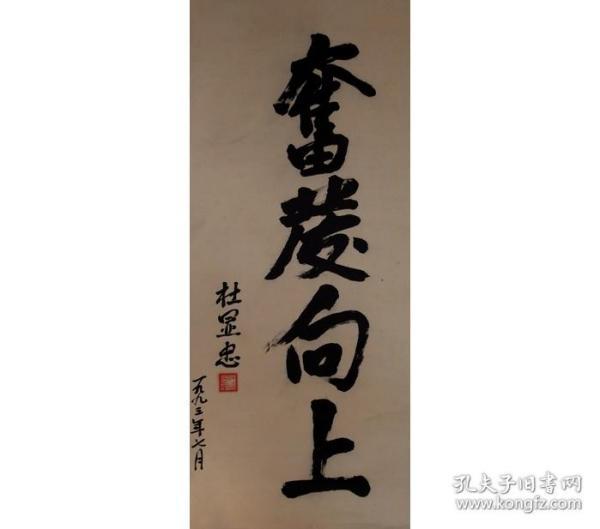 奮發向上
杜显忠
一九九三年七月
孔夫子旧书网
www.kongfz.com